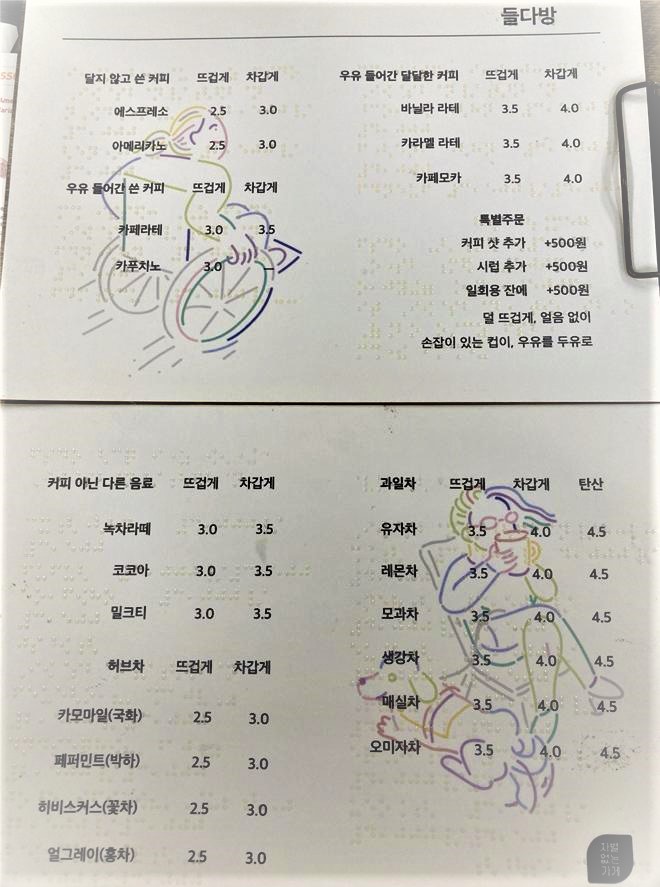 들다방
달지 않고 쓴 커피 뜨겁게 차갑게
에스프레소 2.5 3.0
아메리카노 2.5 3.0
우유 들어간 쓴 커피 뜨겁게 차갑게
카페라테 3.0 3.5
카푸치노 3.0 –
우유 들어간 달달한 커피 뜨겁게 차갑게
바닐라 라테 3.5 4.0
카라멜 라테 3.5 4.0
카페모카 3.5 4.0
특별주문
커피 샷 추가 +500원
시럽 추가 +500원
일회용 잔에 +500원
덜 뜨겁게, 얼음 없이
손잡이 있는 컵이, 우유를 두유로
커피 아닌 다른 음료 뜨겁게 차갑게
녹차라떼 3.0 3.5
코코아 3.0 3.5
밀크티 3.0 3.5
허브차 뜨겁게 차갑게
카모마일(국화) 2.5 3.0
페퍼민트(박하) 2.5 3.0
히비스커스(꽃차) 2.5 3.0
얼그레이(홍차) 2.5 3.0
과일차 뜨겁게 차갑게 탄산
유자차 3.5 4.0 4.5
레몬차 3.5 4.0 4.5
모과차 3.5 4.0 4.5
생강차 3.5 4.0 4.5
매실차 3.5 4.0 4.5
오미자차 3.5 4.0 4.5
차별
없는
가게